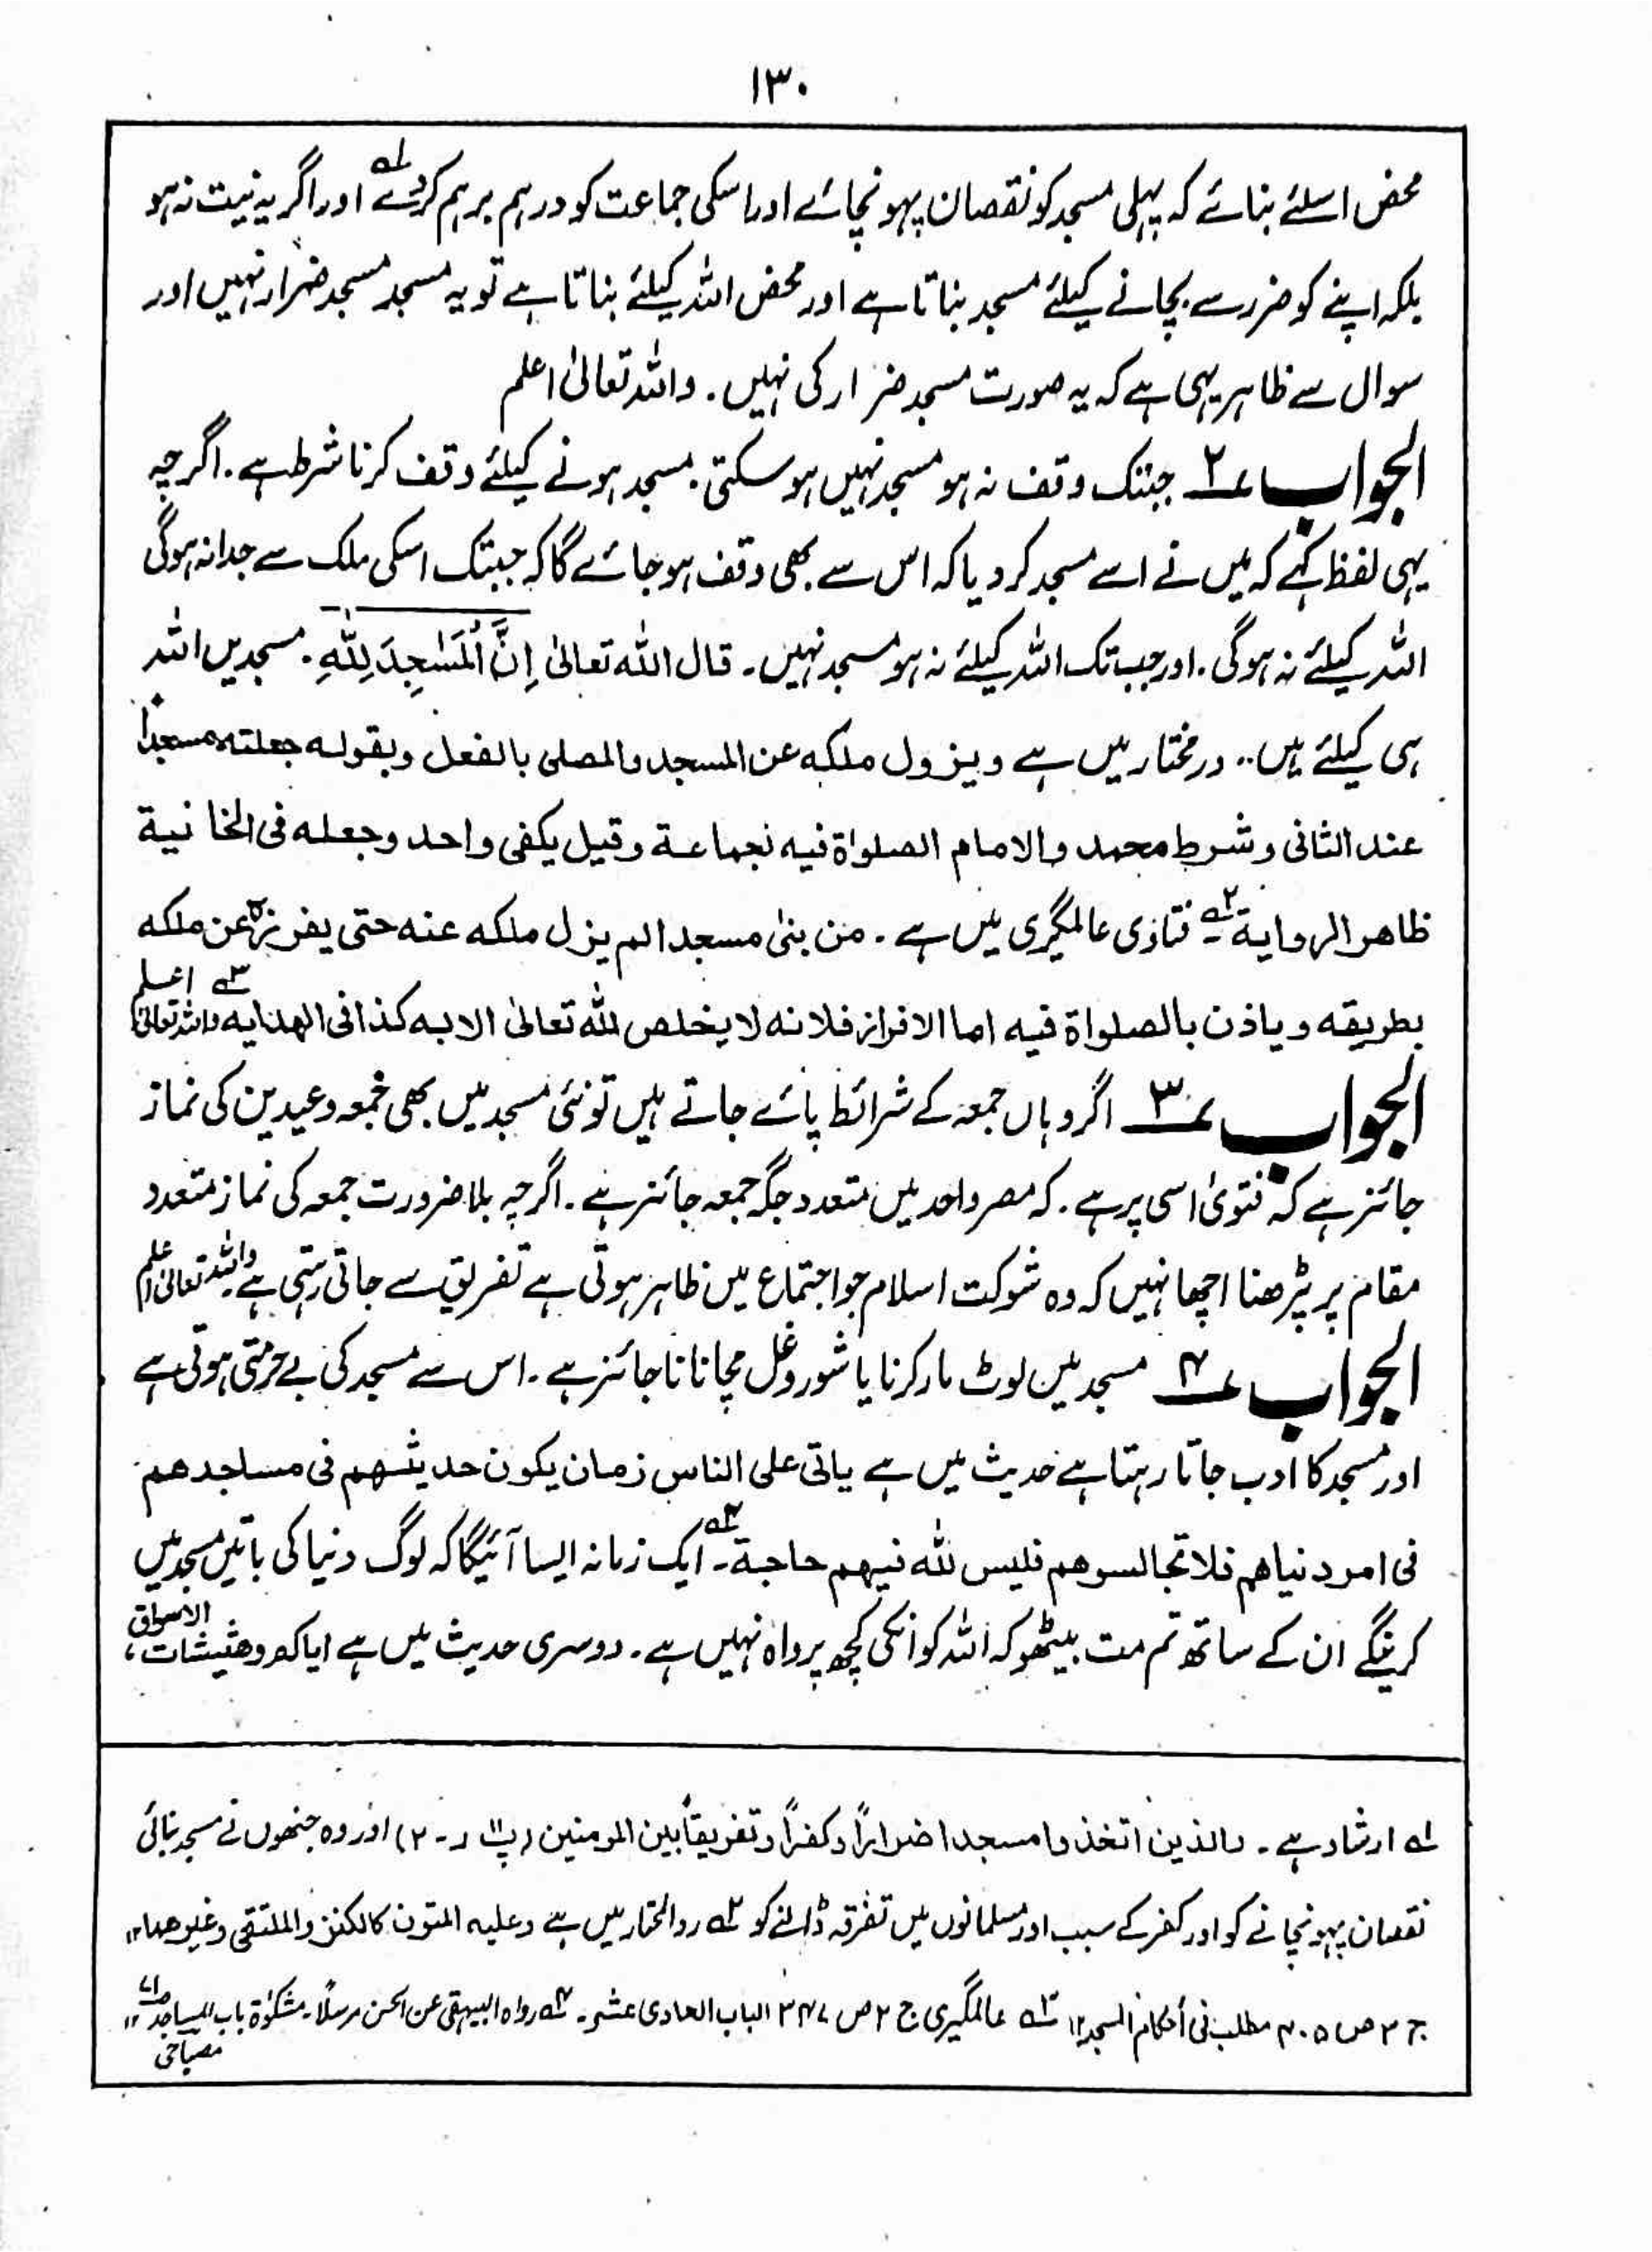 ۱۳۰
محض اسلئے بنائے کہ پہلی مسجد کو نقصان پہونچائے اور اسکی جماعت کو درہم برہم کردے ۱ھ اور اگر یہ نیت نہ ہو
بلکہ اپنے کو ضرر سے بچانے کیلئے مسجد بناتا ہے اور محض اللہ کیلئے بناتا ہے تو یہ مسجد مسجد ضرار نہیں اور
سوال سے ظاہر یہی ہے کہ یہ صورت مسجد ضرار کی نہیں۔ واللہ تعالیٰ اعلم
الجواب ۲؎ جبتک وقف نہ ہو مسجد نہیں ہو سکتی۔ مسجد ہونے کیلئے وقف کرنا شرط ہے۔ اگرچہ
یہی لفظ کہے کہ میں نے اسے مسجد کر دیا کہ اس سے بھی وقف ہو جائے گا کہ جبتک اسکی ملک سے جدا نہ ہوگی
اللہ کیلئے نہ ہوگی۔ اور جب تک اللہ کیلئے نہ ہو مسجد نہیں۔ قال اللہ تعالیٰ اِنَّ الْمَسٰجِدَ لِلّٰہِ۔ مسجدیں اللہ
ہی کیلئے ہیں۔۔ درمختار میں ہے ویزول ملکہ عن المسجد والمصلی بالفعل وبقولہ جعلتہ مسجداً
عند الثانی وشرط محمد والامام الصلواۃ فیہ بجماعۃ وقیل یکفی واحد وجعلہ فی الخانیۃ
ظاھر الروایۃ ۲ھ۔ فتاوٰی عالمگیری میں ہے۔ من بنیٰ مسجدا لم یزل ملکہ عنہ حتی یفرزہ عن ملکہ
بطریقہ ویاذن بالصلواۃ فیہ اما الافراز فلانہ لا یخلص للہ تعالیٰ الا بہ کذا فی الھدایہ ۳ھ واللہ تعالیٰ اعلم
الجواب ۳؎ اگر وہاں جمعہ کے شرائط پائے جاتے ہیں تو نئی مسجد میں بھی جمعہ وعیدین کی نماز
جائز ہے کہ فتویٰ اسی پر ہے۔ کہ مصر واحد میں متعدد جگہ جمعہ جائز ہے۔ اگرچہ بلا ضرورت جمعہ کی نماز متعدد
مقام پر پڑھنا اچھا نہیں کہ وہ شوکت اسلام جو اجتماع میں ظاہر ہوتی ہے تفریق سے جاتی رہتی ہے۔ واللہ تعالیٰ اعلم
الجواب ۴؎ مسجد میں لوٹ مار کرنا یا شور وغل مچانا ناجائز ہے۔ اس سے مسجد کی بے حرمتی ہوتی ہے
اور مسجد کا ادب جاتا رہتا ہے حدیث میں ہے یاتی علی الناس زمان یکون حدیثھم فی مساجدھم
فی امر دنیاھم فلا تجالسوھم فلیس للہ فیھم حاجۃ ۴ھ۔ ایک زمانہ ایسا آئیگا کہ لوگ دنیا کی باتیں مسجد میں
کرینگے ان کے ساتھ تم مت بیٹھو کہ اللہ کو انکی کچھ پرواہ نہیں ہے۔ دوسری حدیث میں ہے ایاکم وھیشات الاسواق،
۱ھ ارشاد ہے۔ والذین اتخذوا مسجدا ضراراً وکفراً وتفریقاً بین المومنین (پ۱۱ ر۔۲) اور وہ جنھوں نے مسجد بنائی
نقصان پہونچانے کو اور کفر کے سبب اور مسلمانوں میں تفرقہ ڈالنے کو ۲ھ ردالمحتار میں ہے وعلیہ المتون کالکنز والملتقی وغیرھما ۱۲
ج ۳ ص ۴۰۵ مطلب فی أحکام المسجد ۱۲ ۳ھ عالمگیری ج ۲ ص ۳۴۷ الباب الحادی عشر۔ ۴ھ رواہ البیہقی عن الحسن مرسلًا۔ مشکوٰۃ باب المساجد ص۷۱ ۱۲
مصباحی